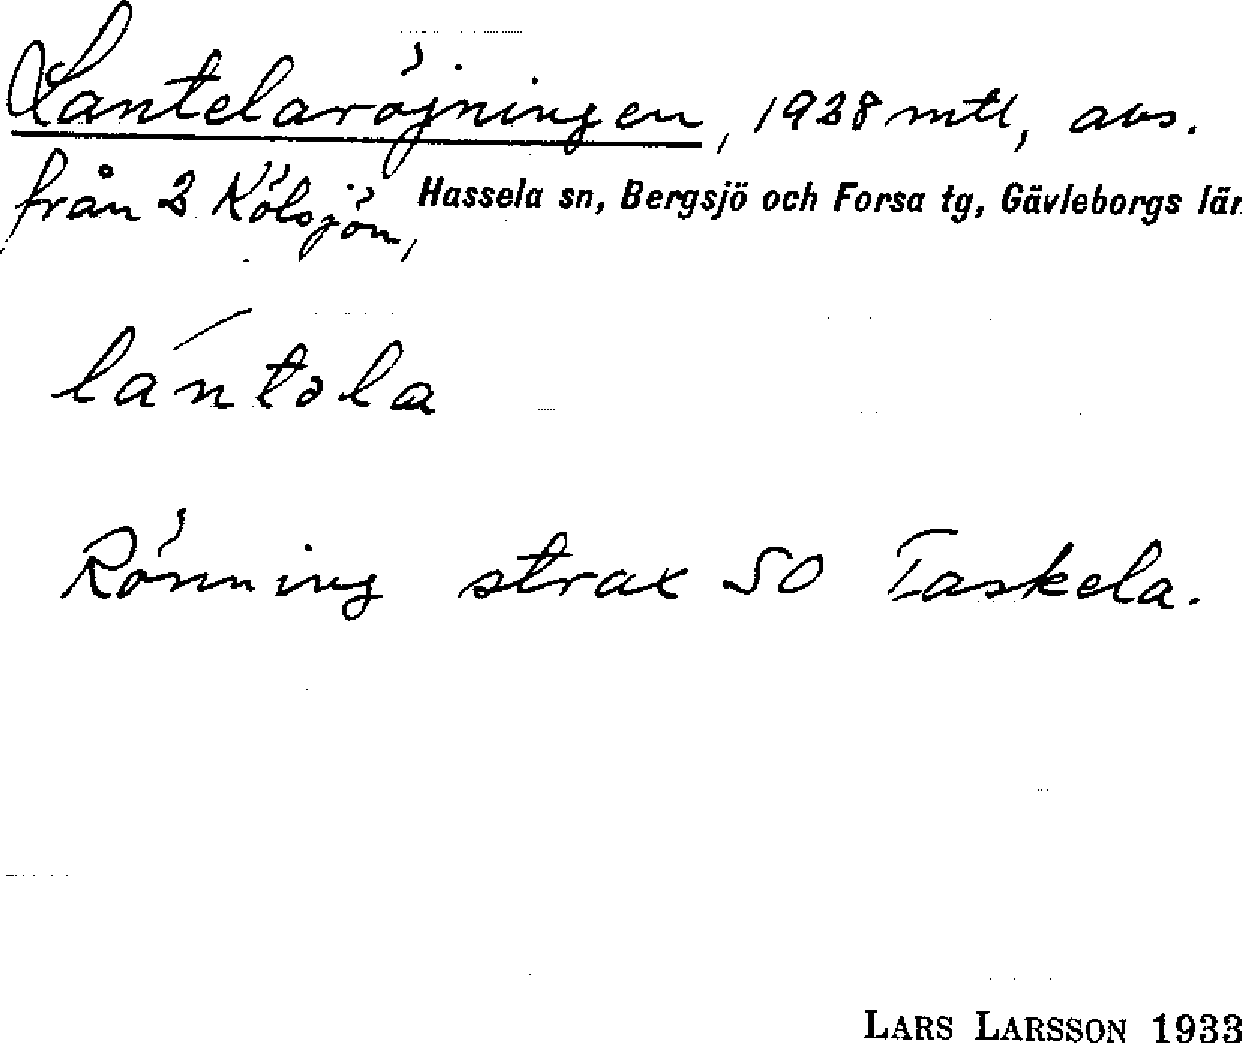 Lantelaröjningen, 1928 mtl, avs.
från 2 Kölsjön, Hassela sn, Bergsjö och Forsa tg, Gävleborgs län
lántəla
Rönning strax SO Taskela.
LARS LARSSON 1933